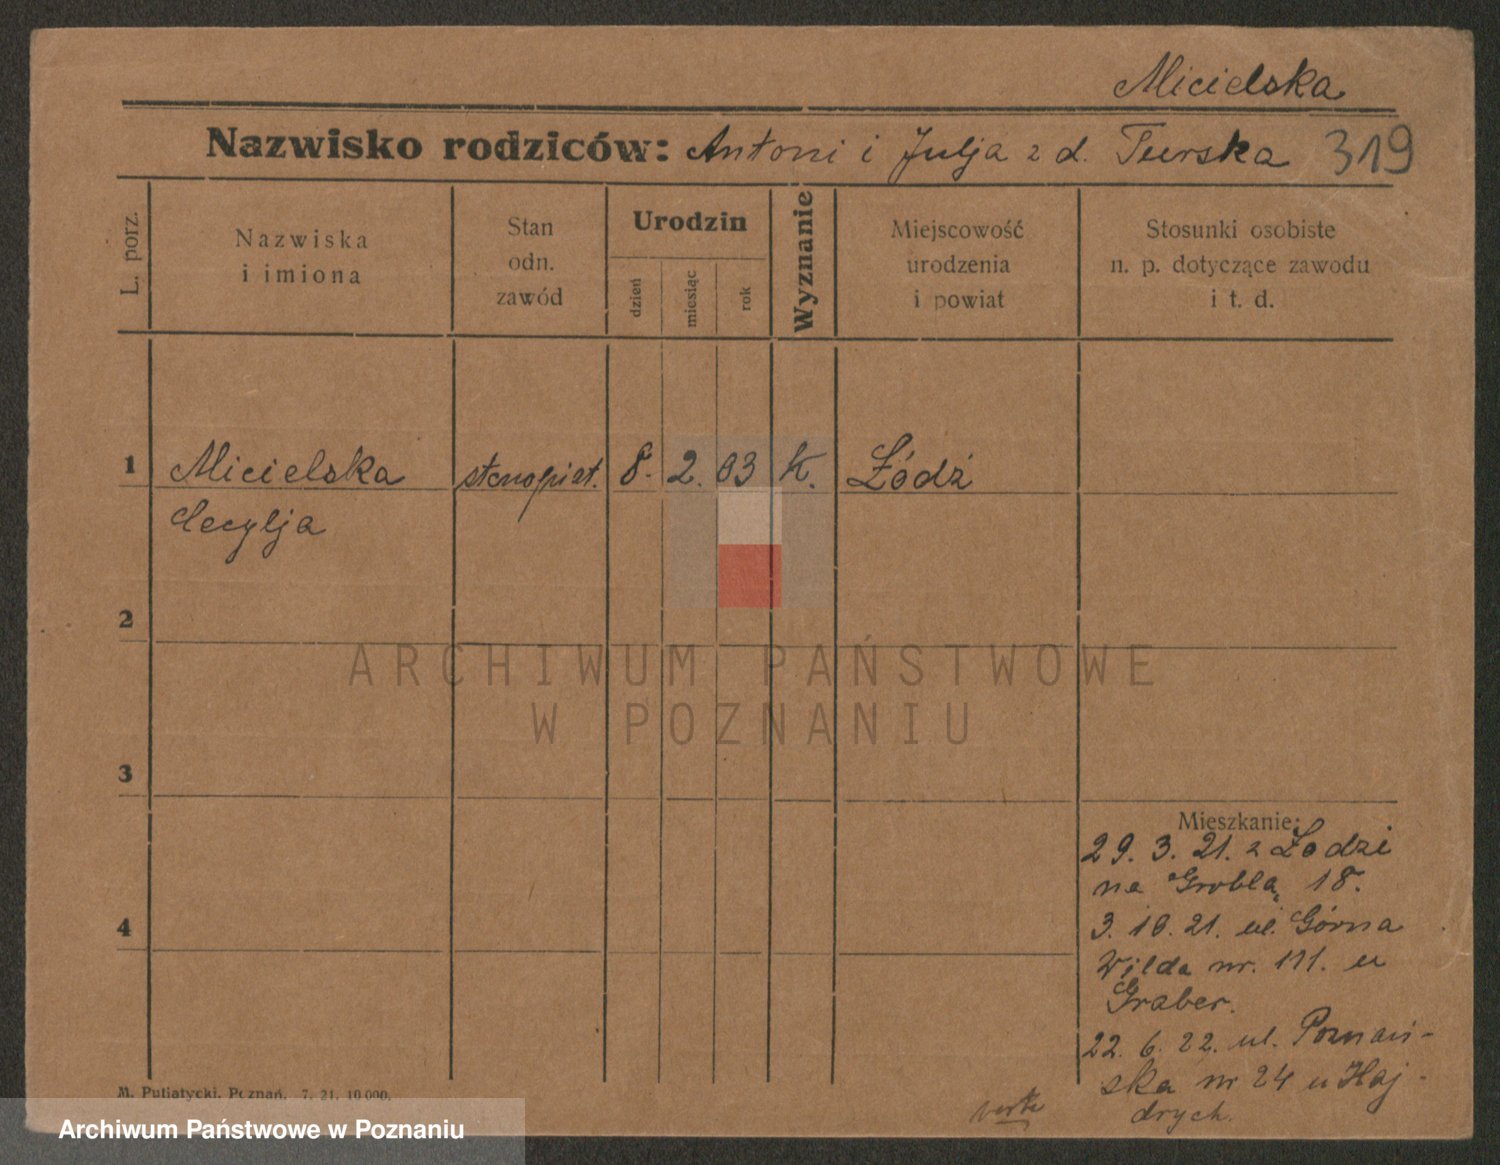 Micielska
Nazwisko rodziców: Antoni i Julja z d. Turska 319
L. porz.
Nazwiska
i imiona
Stan
odn.
zawód
Urodzin
dzień
miesiąc
rok
Wyznanie
Miejscowość
urodzenia
i powiat
Stosunki osobiste
n. p. dotyczące zawodu
i t. d.
1 Micielska stenopist. 8. 2. 03 k. Łódź
Cecylja
2
ARCHIWUM PAŃSTWOWE
W POZNANIU
3
Mieszkanie:
29. 3. 21. z Łodzi
na Grobla, 18.
3. 10. 21. ul. Górna
4
Wilda nr. 111. u
Graber.
22. 6. 22. ul. Poznań-
ska nr 24 u Haj-
drych.
verte
M. Putiatycki, Poznań. 7. 21. 10 000.
Archiwum Państwowe w Poznaniu